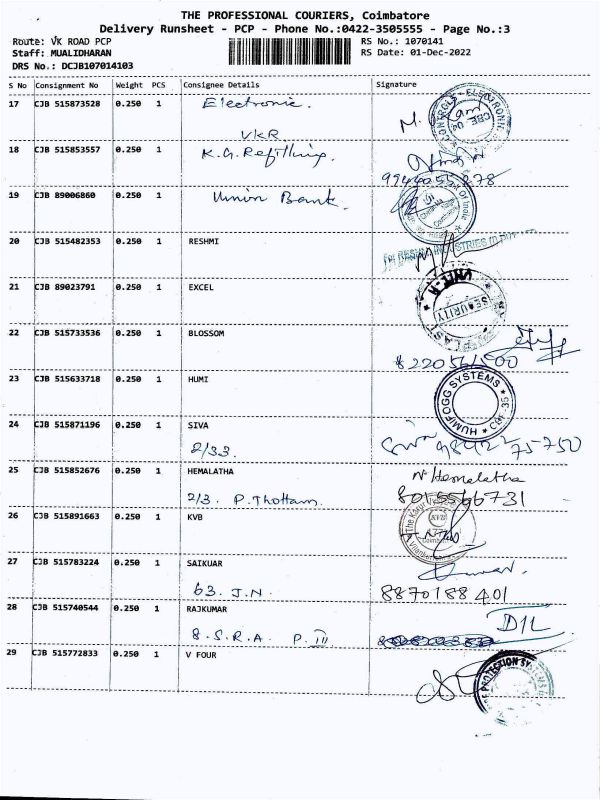 THE PROFESSIONAL COURIERS, Coimbatore
Delivery Runsheet - PCP - Phone No.:0422-3505555 - Page No.:3
Route: VK ROAD PCP RS No.: 1070141
Staff: MUALIDHARAN RS Date: 01-Dec-2022
DRS No.: DCJB107014103
S No Consignment No Weight PCS Consignee Details Signature
17 CJB 515873528 0.250 1 Electronic.
VKR
18 CJB 515853557 0.250 1 K.G. Refilling.
9944055278
19 CJB 89006860 0.250 1 Union Bank.
20 CJB 515482353 0.250 1 RESHMI
21 CJB 89023791 0.250 1 EXCEL
SECURITY
22 CJB 515733536 0.250 1 BLOSSOM
23 CJB 515633718 0.250 1 HUMI
HUMIFOGG SYSTEMS * CBE-35 *
24 CJB 515871196 0.250 1 SIVA
2/33. 98422 75750
25 CJB 515852676 0.250 1 HEMALATHA N Hemalatha
2/3. P. Thottam. 8015566731
26 CJB 515891663 0.250 1 KVB
KVB
27 CJB 515783224 0.250 1 SAIKUAR
63. J.N. 8870188401
28 CJB 515740544 0.250 1 RAJKUMAR
8. S.R.A. P. III D1L
29 CJB 515772833 0.250 1 V FOUR
PROTECTION SYSTEMS